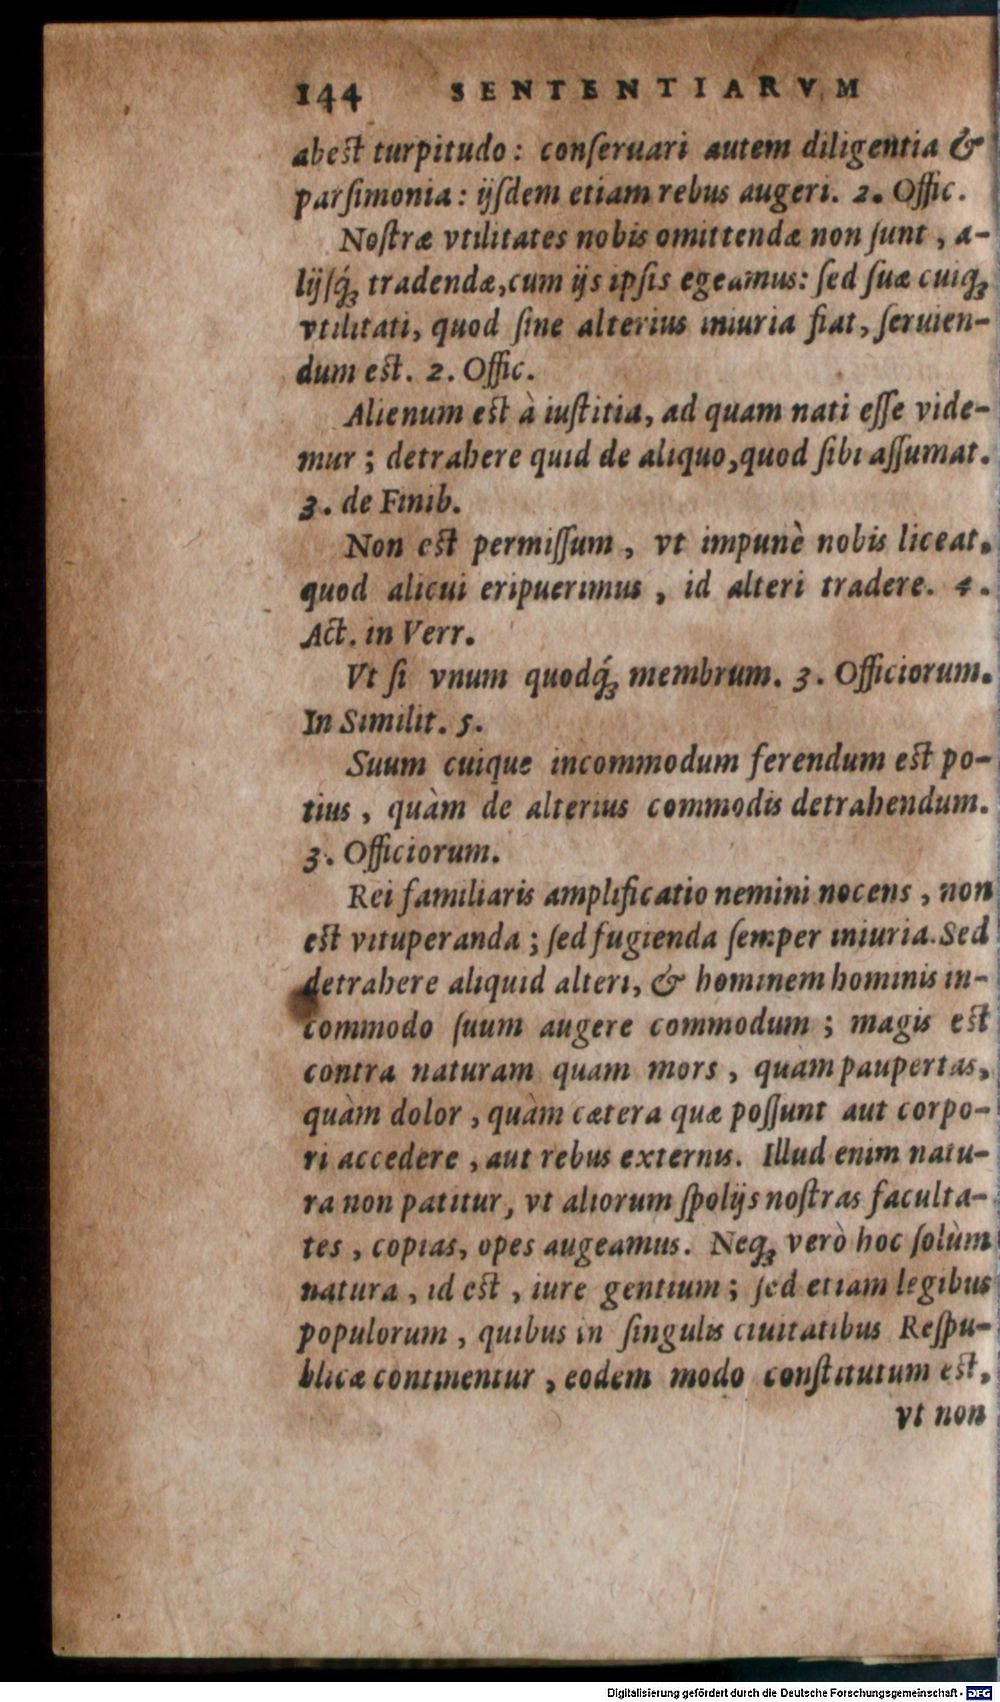 144 SENTENTIARVM
abest turpitudo: conſeruari autem diligentia &
parſimonia: ijſdem etiam rebus augeri. 2. Offic.
Noſtræ vtilitates nobis omittendæ non ſunt, a-
lijſq́ꝫ tradendæ, cum ijs ipſis egeamus: ſed ſuæ cuiqꝫ
vtilitati, quod ſine alterius iniuria fiat, ſeruien-
dum est. 2. Offic.
Alienum est à iuſtitia, ad quam nati eſſe vide-
mur; detrahere quid de aliquo, quod ſibi aſſumat.
3. de Finib.
Non est permiſſum, vt impunè nobis liceat.
quod alicui eripuerimus, id alteri tradere. 4.
Act. in Verr.
Vt ſi vnum quodq́ꝫ membrum. 3. Officiorum.
In Similit. 5.
Suum cuique incommodum ferendum est po-
tius, quàm de alterius commodis detrahendum.
3. Officiorum.
Rei familiaris amplificatio nemini nocens, non
est vituperanda; ſed fugienda ſemper iniuria. Sed
detrahere aliquid alteri, & hominem hominis in-
commodo ſuum augere commodum; magis est
contra naturam quam mors, quàm paupertas,
quàm dolor, quàm cætera quæ poſſunt aut corpo-
ri accedere, aut rebus externis. Illud enim natu-
ra non patitur, vt aliorum ſpolijs noſtras faculta-
tes, copias, opes augeamus. Neqꝫ verò hoc ſolùm
natura, id est, iure gentium; ſed etiam legibus
populorum, quibus in ſingulis ciuitatibus Reſpu-
blicæ continentur, eodem modo conſtitutum est,
vt non
Digitalisierung gefördert durch die Deutsche Forschungsgemeinschaft - DFG